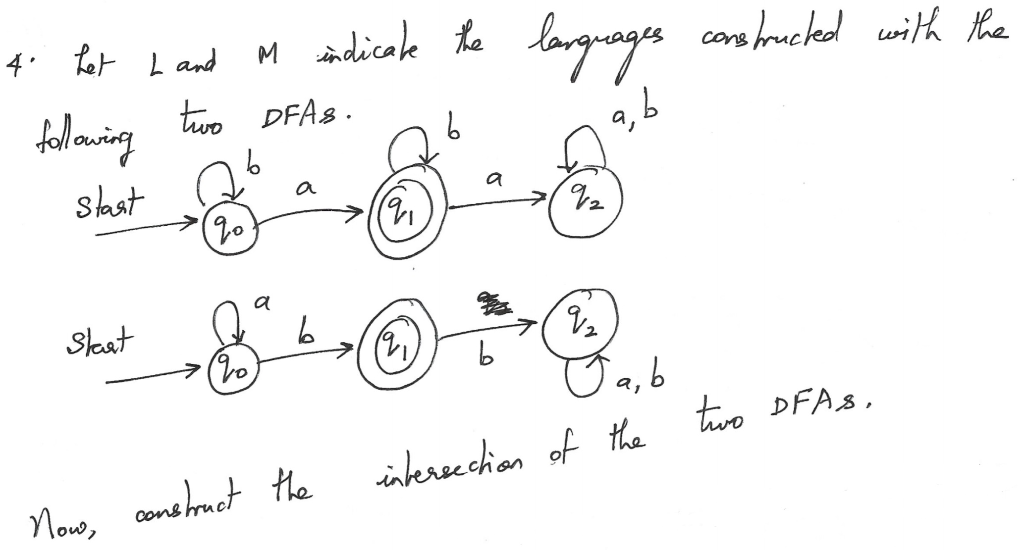 4. Let L and M indicate the languages constructed with the
following two DFAs.
b b a, b
Start q0 a q1 a q2
a
Start q0 b q1 b q2
a, b
Now, construct the intersection of the two DFAs.